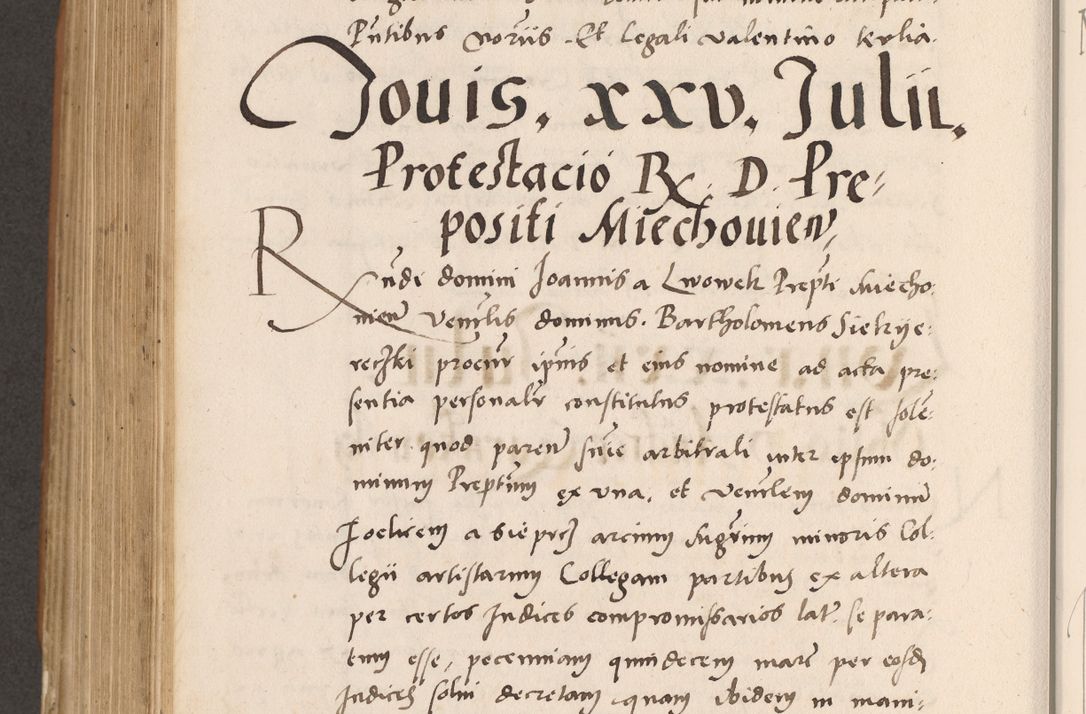 Pñtibus noriis. Et legali valentino tertia.
Jouis. xxv. Julii.
Protestacio Rx. D. Pre=
positi Miechouien
Rx ndi domini Joannis a Lwowek Prepti Miecho:
uien Venrlis dominus. Bartholomeus Siekrye:
reczki procur ipius et eius nomine ad acta pre:
sentia personalr constitutus protestatus est sole:
niter quod paren snie arbitrali inter ipsum do:
minum Preptum ex vna, et Venrlem dominum
a Sieprcz arcium Mgrum minoris Col:
legii artistarum Collegam partibus ex altera
per certos Judices compromissarios lat. se para:
tum esse, pecuniam quindecem marc per eosd
Judices solui decretam quam ibidem in mani: